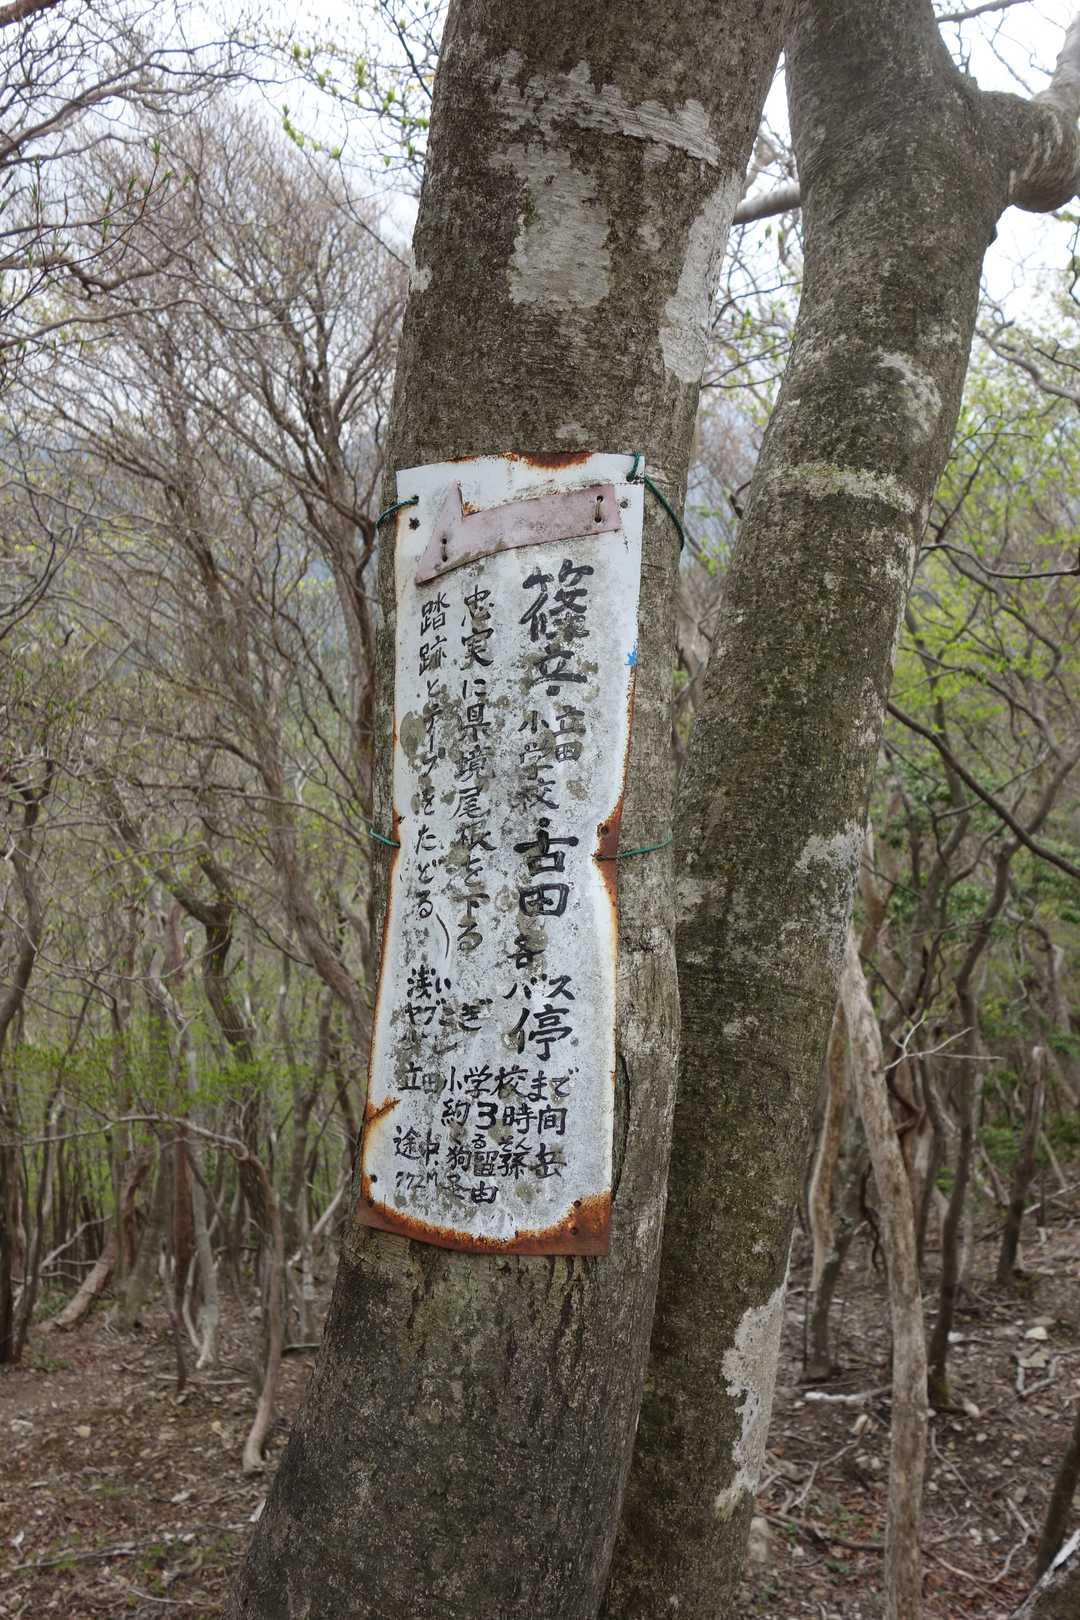 篠立・立田小学校・古田各バス停
忠実に県境尾根を下る
踏跡とテープをたどる
浅いヤブこぎ
立田小学校まで
約3時間
途中、狗留孫岳
772M 経由